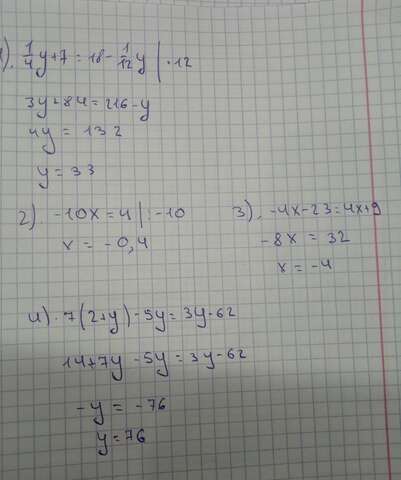 1). 1/4 y+7 = 18 - 1/12 y | · 12
3y+84 = 216-y
4y = 132
y = 33
2). -10x = 4 | : -10
x = -0,4
3). -4x-23 = 4x+9
-8x = 32
x = -4
4). 7(2+y)-5y = 3y-62
14+7y-5y = 3y-62
-y = -76
y = 76